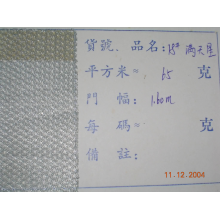 貨號.品名:15# 滿天星
平方米≈ 65 克
門 幅: 1.60m
每 碼≈ 克
備 註:
11.12.2004